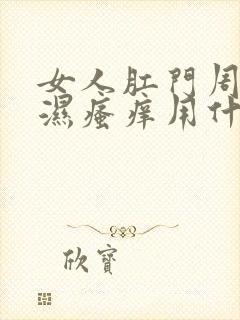 女人肛門周
濕瘙痒用什
欣寶